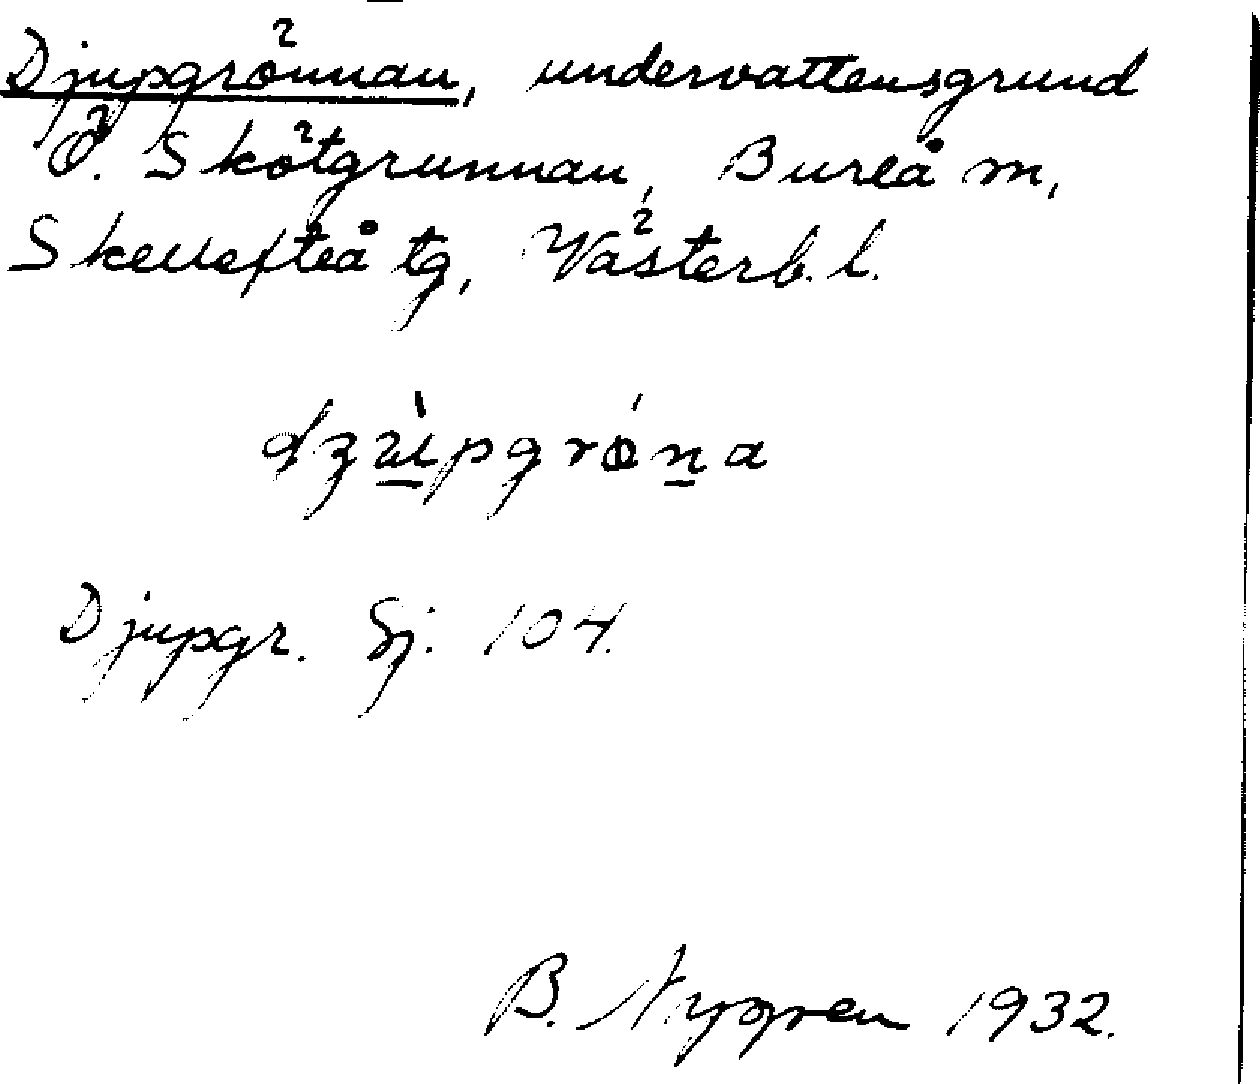 Djupgrönnan, undervattensgrund
Ö. Skötgrunnan, Bureå m,
Skellefteå tg, Västerb. l.
Djupgr. Sj. 104.
B. Nygren 1932.